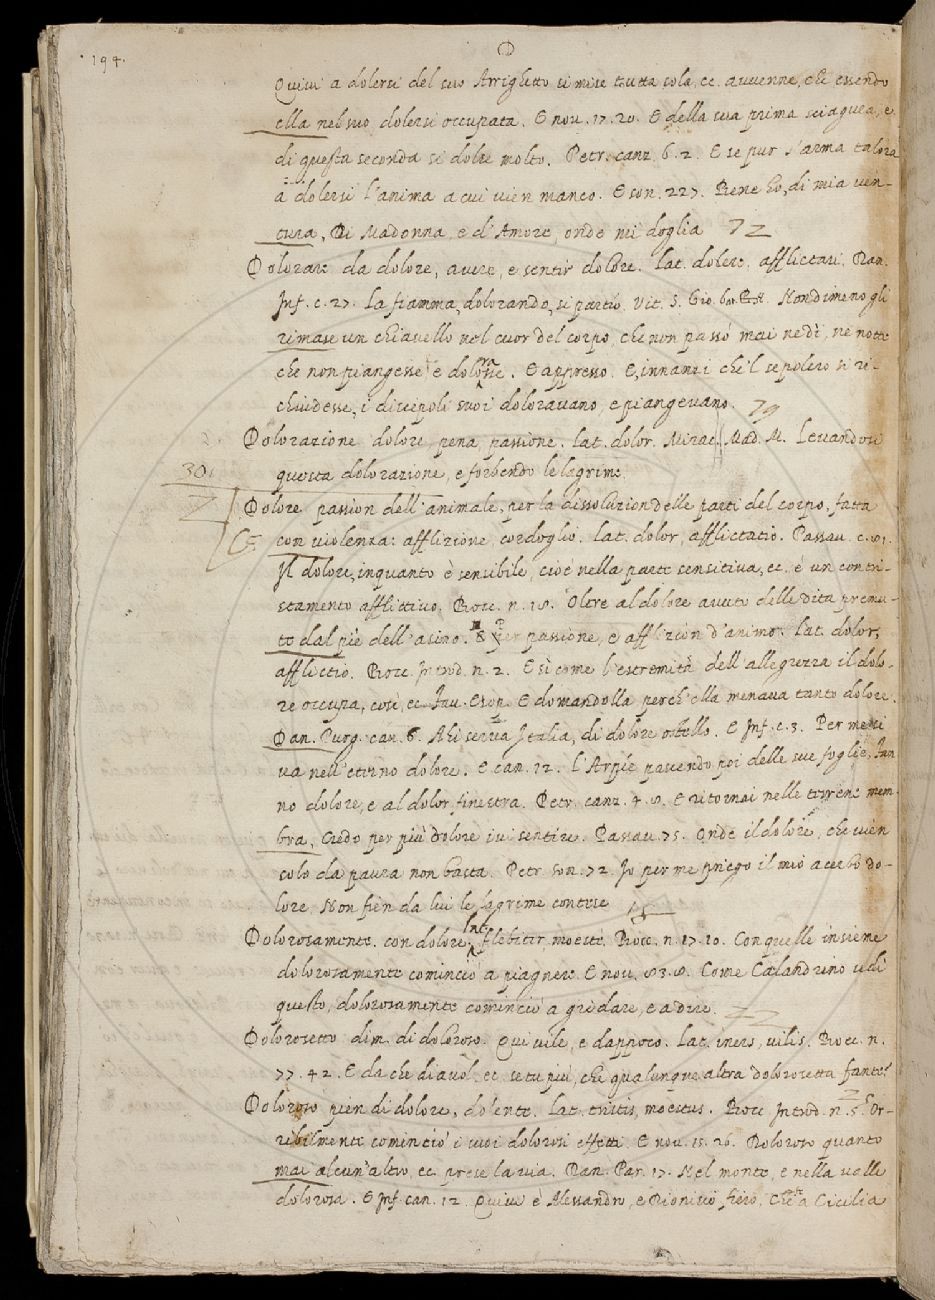 194.
D
Quivi a dolersi del suo Arrighetto si mise tutta sola, ec. avvenne, che essendo
ella nel suo dolersi occupata. E nov. 17. 20. E della sua prima sciagura, e
di questa seconda si dolse molto. Petr. canz. 6. 2. E se pur s'arma talora
a dolersi l'anima a cui vien manco. E son. 227. Piene ho, di mia ven-
tura, Di Madonna, e d'Amore, onde mi doglia 72
Dolorare da dolore, avere, e sentir dolore. Lat. dolere, afflictari. Dan.
Inf. c. 27. La fiamma, dolorando, si partio. Vit. S. Gio. Nondimeno gli
rimase un chiavello nel cuor del corpo, che non passò mai nedì, nè notte
che non piangesse e . E appresso. E, innanzi che'l sepolcro si ri-
chiudesse, i discipoli suoi doloravano, e piangevano. 79
Dolorazione dolore, pena, passione. Lat. dolor. Mirac. Mad. M. Levandosi
questa dolorazione, e forbendo le lagrime
30
Dolore passion dell'animale, per la dissoluzion delle parti del corpo, fatta
con violenza: afflizione, cordoglio. Lat. dolor, afflictatio. Passav. c.
Il dolore, inquanto è sensibile, cioè nella parte sensitiva, ec. è un contri-
stamento afflittivo. Bocc. n. Oltre al dolore avuto delle dita premu-
te dal piè dell'asino. § Per passione, e afflizion d'animo. Lat. dolor,
afflictio. Bocc. Introd. n. 2. E sì come l'estremità dell'allegrezza il dolo-
re occupa, così, ec. E domandolla perch'ella menava tanto dolore.
Dan. Purg. can. 6. Ahi serva Italia, di dolore ostello. E Inf. c. 3. Per me si
va nell'etterno dolore. E can. 12. L'Arpie pascendo poi delle sue foglie, Fan
no dolore, e al dolor finestra. Petr. canz. 4. E ritornai nelle terrene mem-
bra, Credo per più dolore ivi sentire. Passav. 75. Onde il dolore, che vien
solo da paura non basta. Petr. son. 72. Io per me priego il mio acerbo do-
lore Non sien da lui le lagrime contese 15
Dolorosamente. con dolore. Lat. flebiliter, moeste. Bocc. n. 17. 10. Con quelle insieme
dolorosamente cominciò a piagnere. E nov. Come Calandrino udì
questo, dolorosamente cominciò a gridare, e a dire. 22
Dolorosetto dim. di doloroso. Qui vile, e dappoco. Lat. iners, vilis. Bocc. n.
77. 42. E da che diavol, ec. se tu più, che qualunque altra dolorosetta fante?
Doloroso pien di dolore, dolente. Lat. tristis, moestus. Bocc. Introd. n. 5. Or-
ribilmente cominciò i suoi dolorosi effetti. E nov. 15. 26. Doloroso quanto
mai alcun'altro, ec. prese la via. Dan. Par. 17. Nel monte, e nella valle
dolorosa. E Inf. can. 12. Quivi è Alessandro, e Dionisio fiero, Che a Cicilia